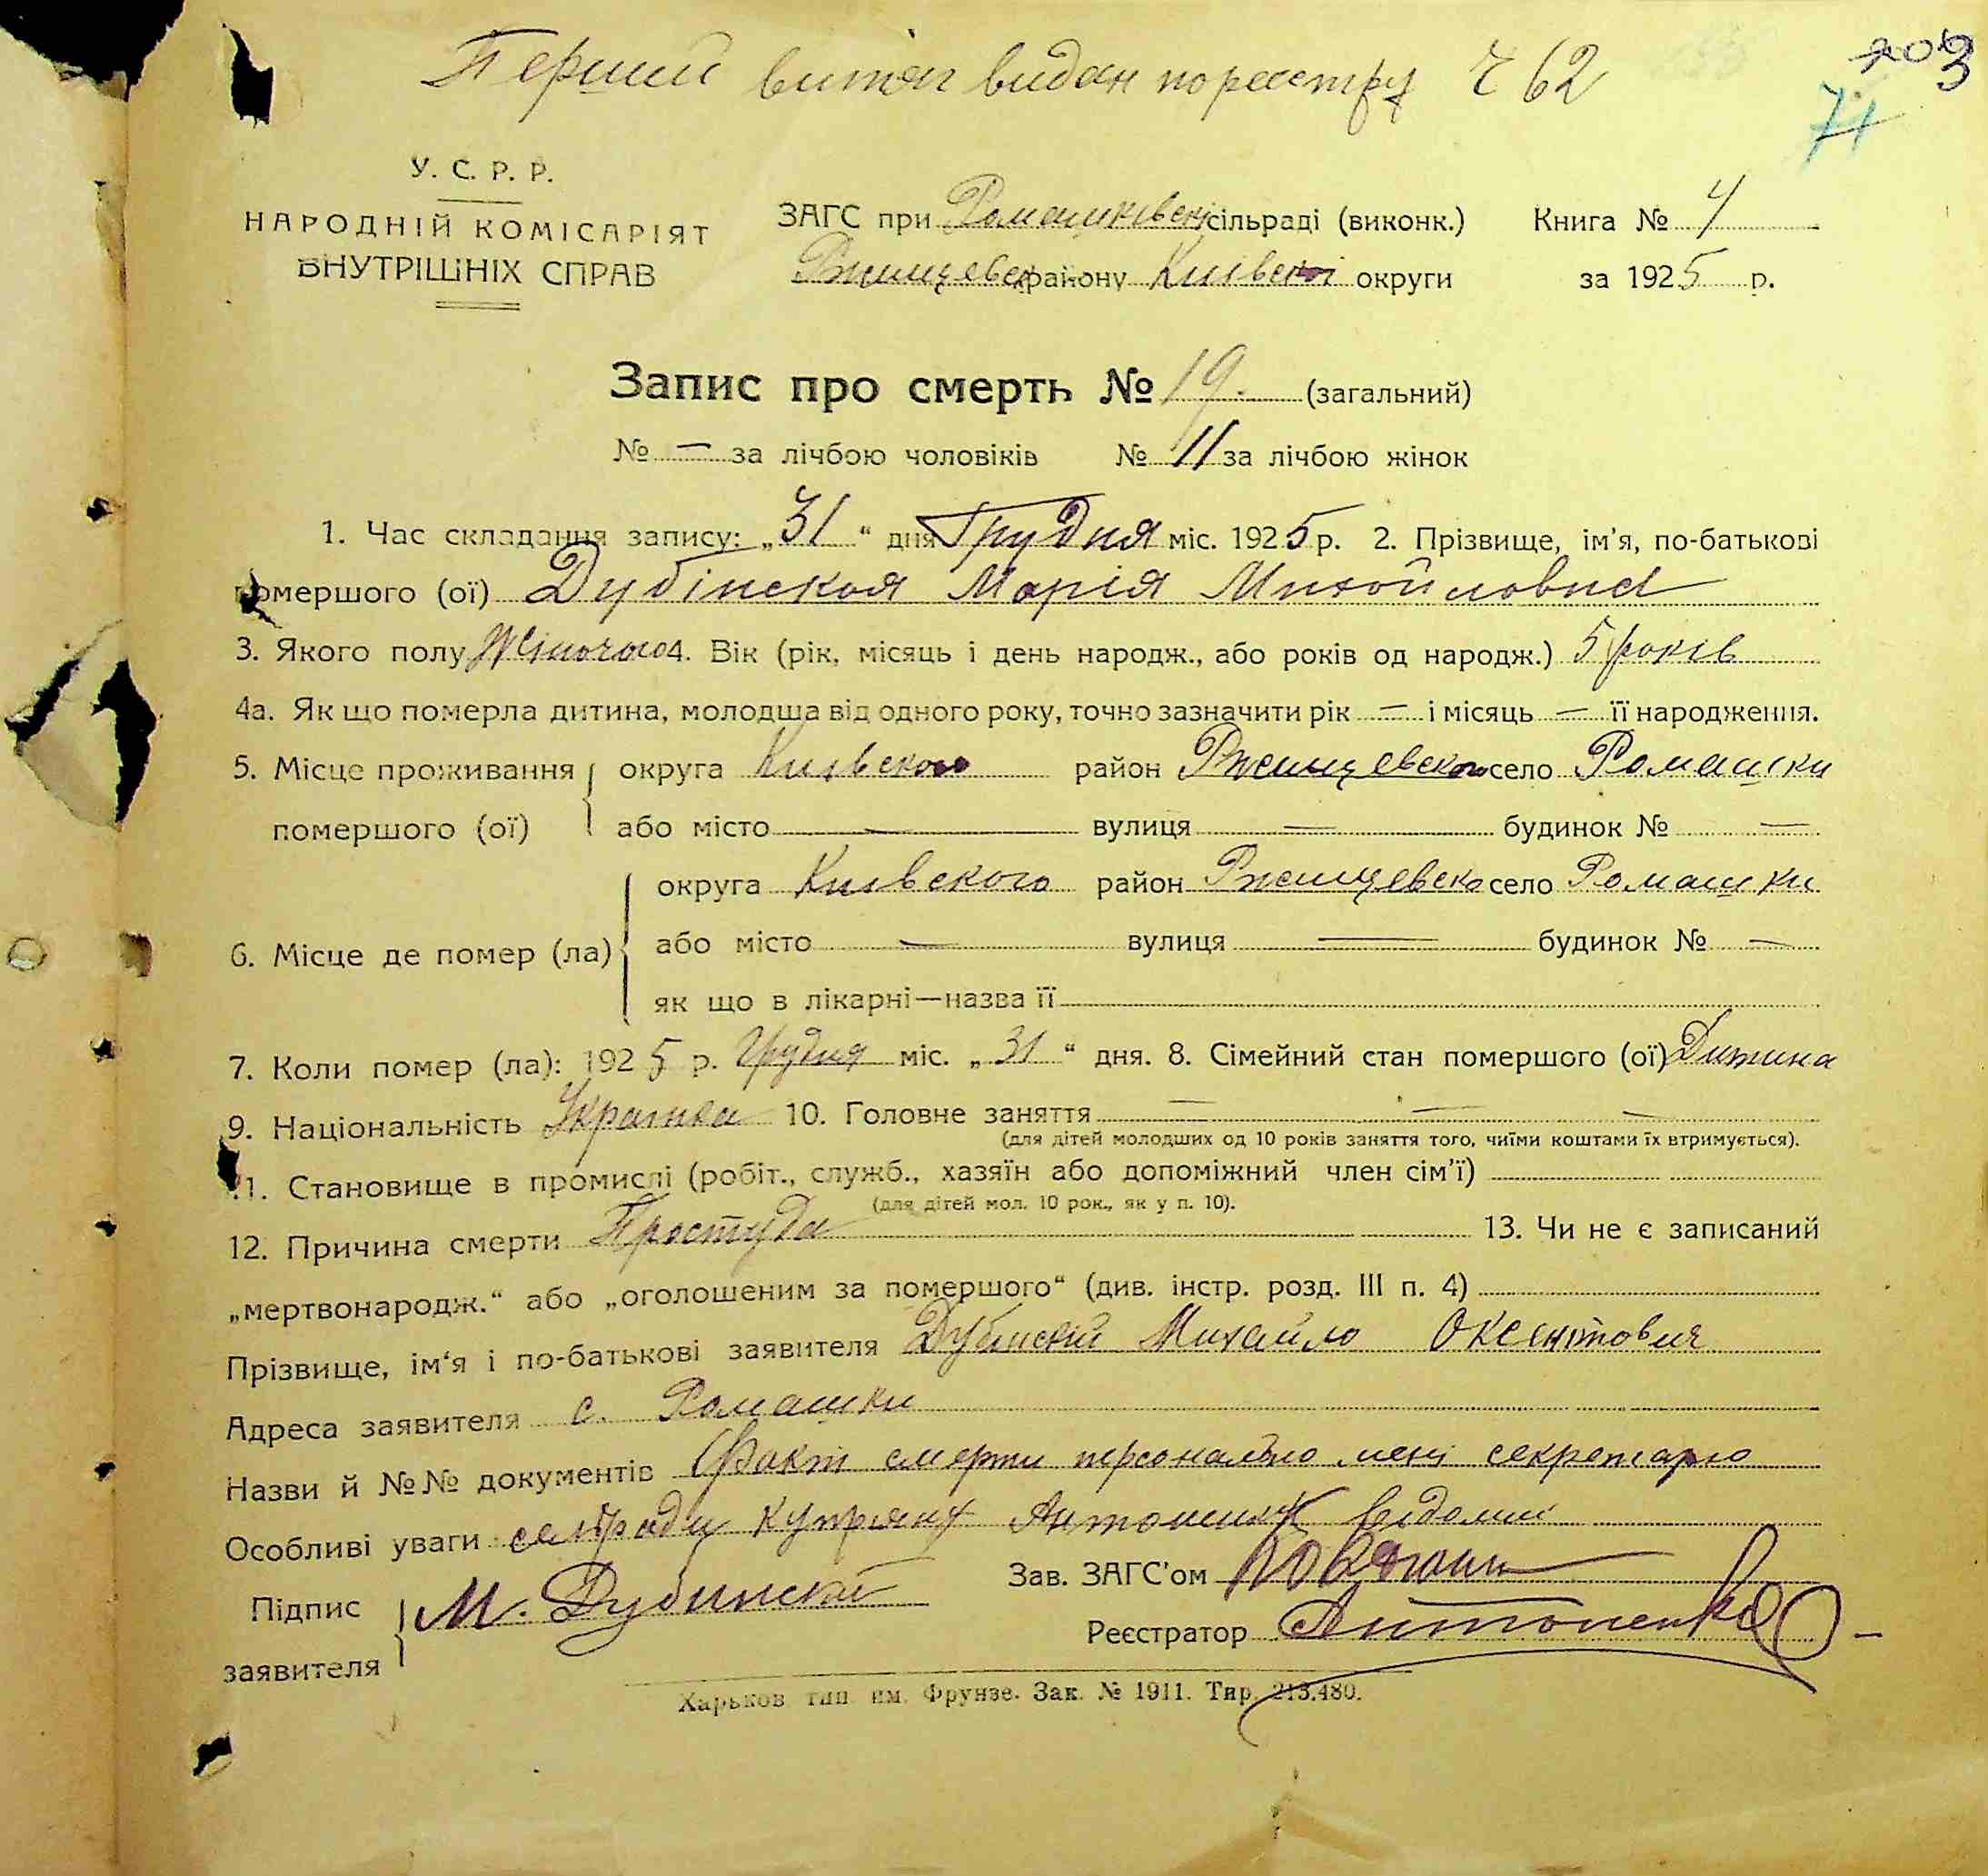 Перший витяг видан по реестру Ч 62
203
71
У. С. Р. Р.
НАРОДНІЙ КОМІСАРІЯТ
ВНУТРІШНІХ СПРАВ
ЗАГС при Ромашківскі сільраді (виконк.) Книга № 4
Ржищевск району Київскоі округи за 1925 р.
Запис про смерть № 19 (загальний)
№ — за лічбою чоловіків № 11 за лічбою жінок
1. Час складання запису: „31“ дня Грудня міс. 1925 р. 2. Прізвище, ім'я, по-батькові
помершого (ої) Дубінская Марія Михайловна
3. Якого полу Жіночого 4. Вік (рік, місяць і день народж., або років од народж.) 5 років
4а. Як що померла дитина, молодша від одного року, точно зазначити рік — і місяць — її народження.
5. Місце проживання помершого (ої) округа Київского район Ржищевского село Ромашки
або місто — вулиця — будинок № —
6. Місце де помер (ла) округа Київского район Ржищевско село Ромашки
або місто — вулиця — будинок № —
як що в лікарні—назва її
7. Коли помер (ла): 1925 р. Грудня міс. „31“ дня. 8. Сімейний стан помершого (ої) Дитина
9. Національність Украінка 10. Головне заняття — — —
(для дітей молодших од 10 років заняття того, чиїми коштами їх втримується).
11. Становище в промислі (робіт., служб., хазяїн або допоміжний член сім'ї)
(для дітей мол. 10 рок., як у п. 10).
12. Причина смерти Простуда 13. Чи не є записаний
„мертвонародж.“ або „оголошеним за помершого“ (див. інстр. розд. III п. 4)
Прізвище, ім'я і по-батькові заявителя Дубінский Михайло Оксентович
Адреса заявителя с. Ромашки
Назви й №№ документів Факт смерти персонально мені секретарю
Особливі уваги сельради Антоненк відомий
Підпис заявителя М. Дубинский
Зав. ЗАГС'ом
Реєстратор Антоненко
Харьков тип им. Фрунзе. Зак. № 1911. Тир. 213.480.